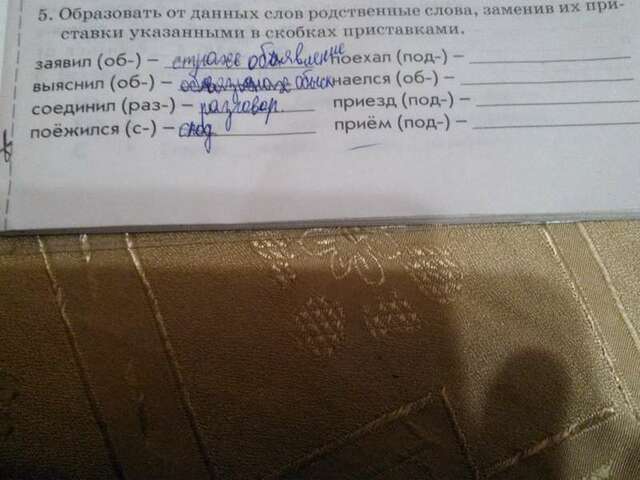 5. Образовать от данных слов родственные слова, заменив их при-
ставки указанными в скобках приставками.
заявил (об-) – объявление поехал (под-) –
выяснил (об-) – обыск наелся (об-) –
соединил (раз-) – разговор. приезд (под-) –
поёжился (с-) – сход приём (под-) –